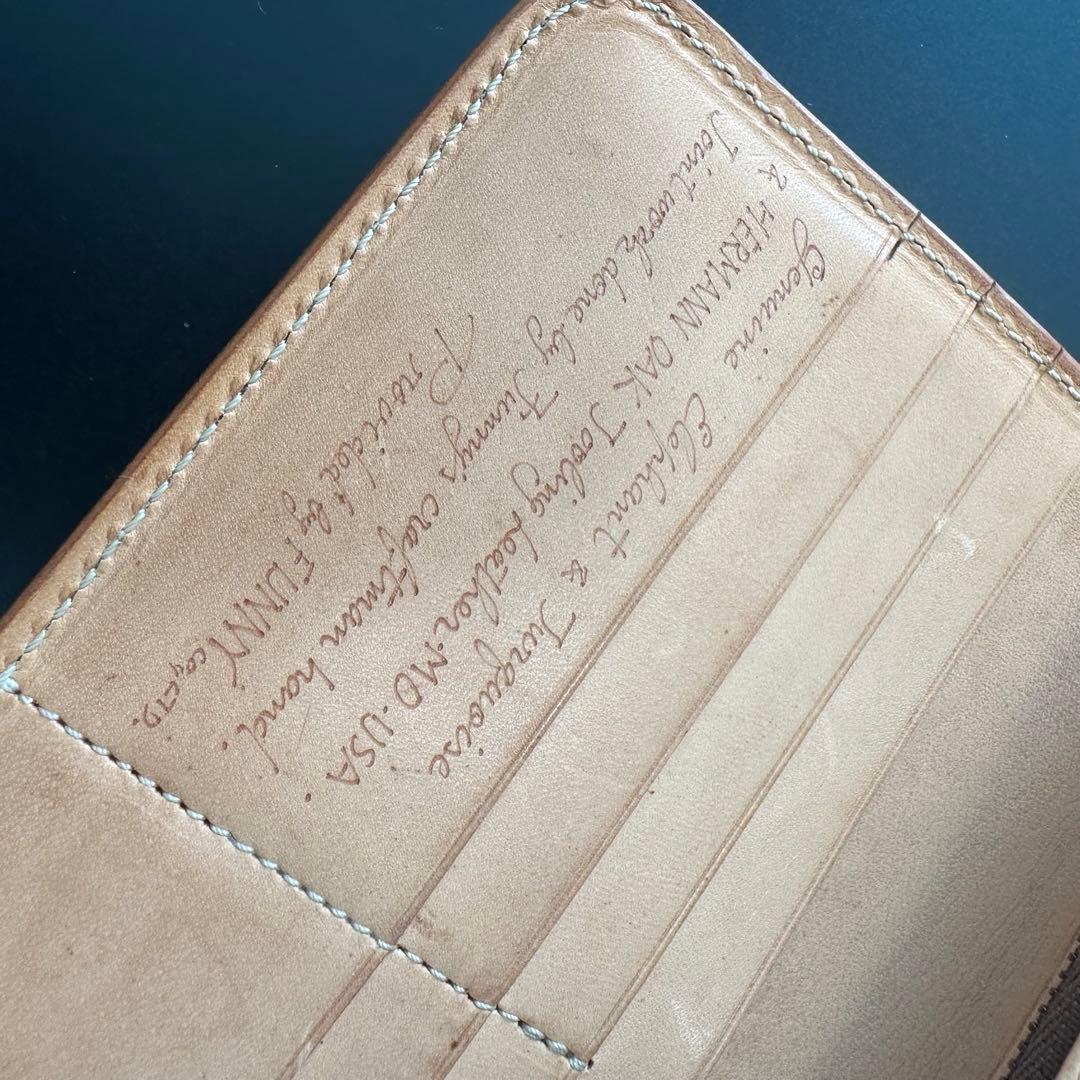 Genuine Elephant & Turquoise
& HERMANN OAK Tooling Leather.MD.USA.
Joint work done by Funny's craftman hand.
Provided by FUNNY co.,LTD.